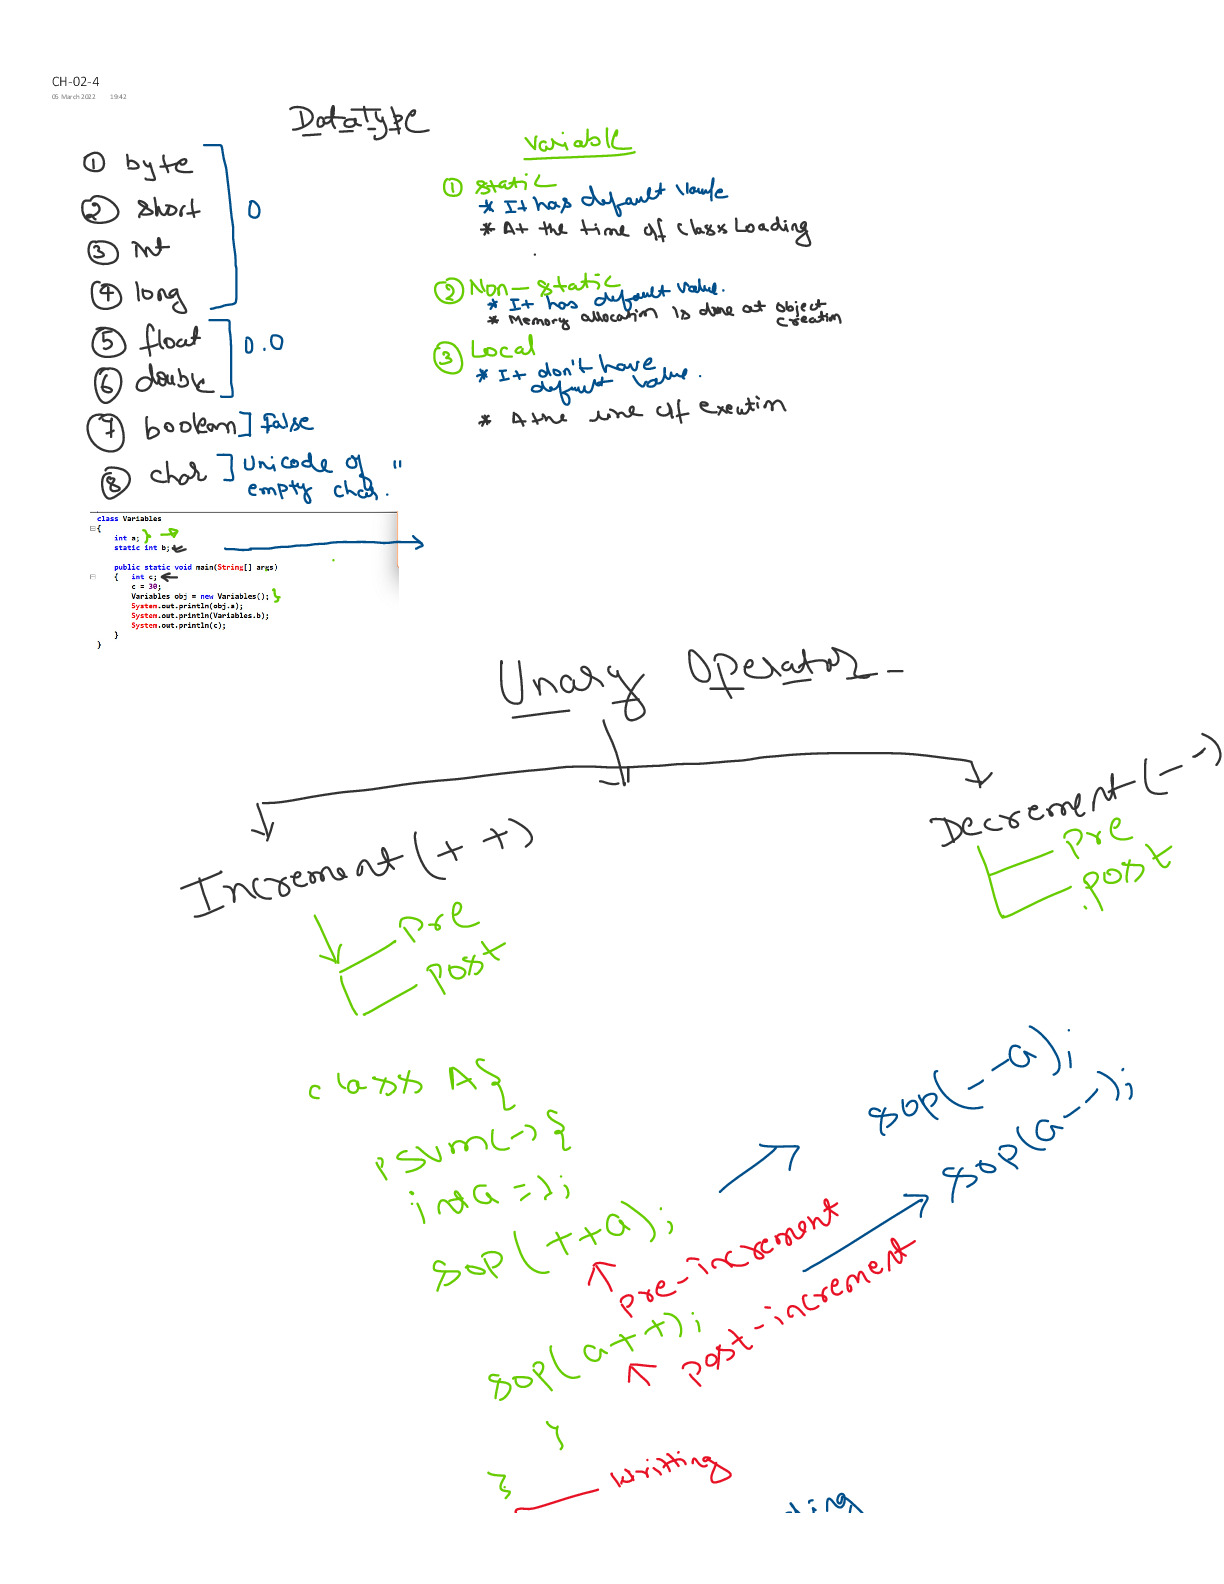 CH-02-4
05 March 2022 19:42
DataType
① byte
② short
③ int
④ long
0
⑤ float
⑥ double
0.0
⑦ boolean ] false
⑧ char ] Unicode of ''
empty char.
Variable
① static
* It has default
* At the time of class Loading
② Non-static
* It has default value.
* Memory allocation is done at object
creation
③ Local
* It don't have
default value.
* At the of
class Variables
{
int a;
static int b;
public static void main(String[] args)
{ int c;
c = 30;
Variables obj = new Variables();
System.out.println(obj.a);
System.out.println(Variables.b);
System.out.println(c);
}
}
Unary Operator
Increment (++)
Pre
Post
Decrement (--)
Pre
post
class A{
psvm(-){
int a = 1;
sop(++a);
pre-increment
sop(a++);
post-increment
}
}
sop(--a);
sop(a--);
Writting